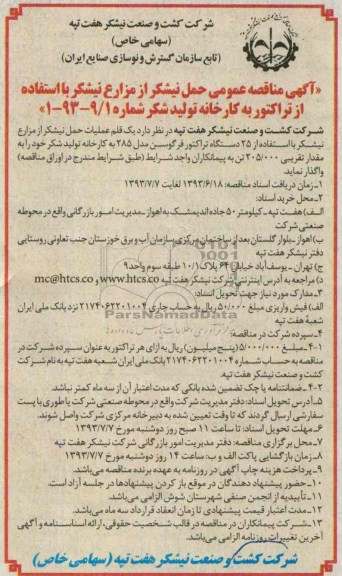 شرکت کشت و صنعت نیشکر هفت تپه
(سهامی خاص)
(تابع سازمان گسترش و نوسازی صنایع ایران)
«آگهی مناقصه عمومی حمل نیشکر از مزارع نیشکر با استفاده
از تراکتور به کارخانه تولید شکر شماره ۹/۱-۹۳-۱»
شرکت کشت و صنعت نیشکر هفت تپه در نظر دارد یک قلم عملیات حمل نیشکر از مزارع
نیشکر با استفاده از ۲۵ دستگاه تراکتور فرگوسن مدل ۲۸۵ به کارخانه تولید شکر خود را به
مقدار تقریبی ۲۰۵/۰۰۰ تن به پیمانکاران واجد شرایط (طبق شرایط مندرج در اوراق مناقصه)
واگذار نماید.
۱- زمان دریافت اسناد مناقصه: ۱۳۹۳/۶/۱۸ لغایت ۱۳۹۳/۷/۷
۲- محل خرید اسناد:
الف) هفت تپه - کیلومتر ۵۰ جاده اندیمشک به اهواز - مدیریت امور بازرگانی واقع در محوطه
صنعتی شرکت
ب) اهواز - بلوار گلستان بعد از ساختمان مرکزی سازمان آب و برق خوزستان جنب تعاونی روستایی
دفتر نیشکر هفت تپه
ج) تهران - یوسف‌آباد خیابان ۶۴ پلاک ۱۰/۱ طبقه سوم واحد ۹
د) مراجعه به آدرس اینترنتی شرکت نیشکر هفت تپه www.htcs.co و mc@htcs.co
۳- مدارک مورد نیاز جهت تحویل اسناد:
الف) فیش واریزی مبلغ ۵۰۰/۰۰۰ ریال به حساب جاری ۲۱۷۴۰۶۲۲۰۱۰۰۴ نزد بانک ملی ایران
شعبه هفت تپه
۴- سپرده شرکت در مناقصه:
۴-۱- مبلغ ۵/۰۰۰/۰۰۰ (پنج میلیون) ریال به ازای هر تراکتور به عنوان سپرده شرکت در
مناقصه به حساب شماره ۲۱۷۴۰۶۲۲۰۱۰۰۴ بانک ملی ایران شعبه هفت تپه به نام شرکت
کشت و صنعت نیشکر هفت تپه
۴-۲- ضمانتنامه یا چک تضمین شده بانکی که مدت اعتبار آن از سه ماه کمتر نباشد.
۵- آدرس تحویل اسناد: دفتر مدیریت شرکت واقع در محوطه صنعتی شرکت یا طوری با پست
سفارشی ارسال گردند که تا وقت تعیین شده به دبیرخانه مرکزی شرکت واصل شوند.
۶- مهلت تحویل اسناد: تا ساعت ۱۱ صبح روز دوشنبه مورخ ۱۳۹۳/۷/۷
۷- محل برگزاری مناقصه: دفتر مدیریت امور بازرگانی شرکت نیشکر هفت تپه
۸- زمان بازگشایی پاکت الف و ب: ساعت ۱۴ روز دوشنبه مورخ ۱۳۹۳/۷/۷
۹- پرداخت هزینه چاپ آگهی در روزنامه به عهده برنده مناقصه می‌باشد.
۱۰- حضور پیشنهاد دهندگان در موقع باز کردن پیشنهادها در جلسه آزاد است.
۱۱- تأییدیه از انجمن صنفی شهرستان شوش الزامی می‌باشد.
۱۲- مدت اعتبار قیمت پیشنهادی تا زمان انعقاد قرارداد سه ماه می‌باشد.
۱۳- شرکت پیمانکاران در مناقصه در قالب شخصیت حقوقی، ارائه اساسنامه و آگهی
آخرین تغییرات روزنامه الزامی می‌باشد.
شرکت کشت و صنعت نیشکر هفت تپه (سهامی خاص)